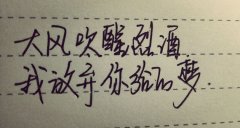 大风吹醒烈酒
我放弃你给的梦